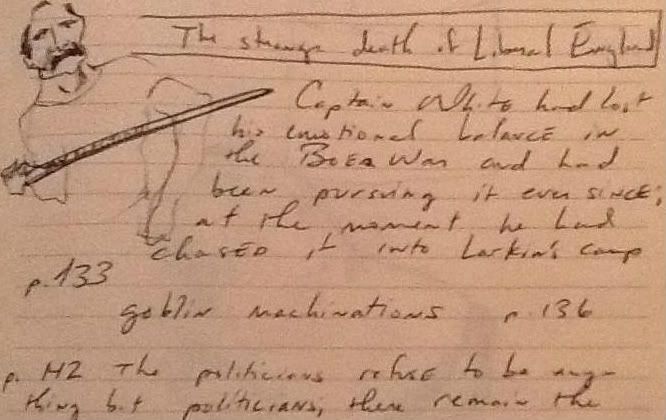 The strange death of Liberal England
Captain White had lost
his emotional balance in
the BOER War and had
been pursuing it ever SINCE;
at the moment he had
chased it into Larkin's camp
p.133
goblin machinations p.136
p. 142 The politicians refuse to be any
thing but politicians; there remain the